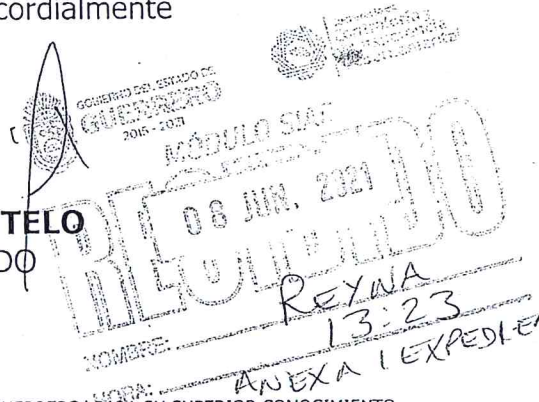 cordialmente
GOBIERNO DEL ESTADO DE
GUERRERO
2015 - 2021
MÓDULO SIAF
RECIBIDO
08 JUN. 2021
TELO
DO
NOMBRE: REYNA
HORA: 13:23
ANEXA 1 EXPEDIE
SUPERIOR CONOCIMIENTO